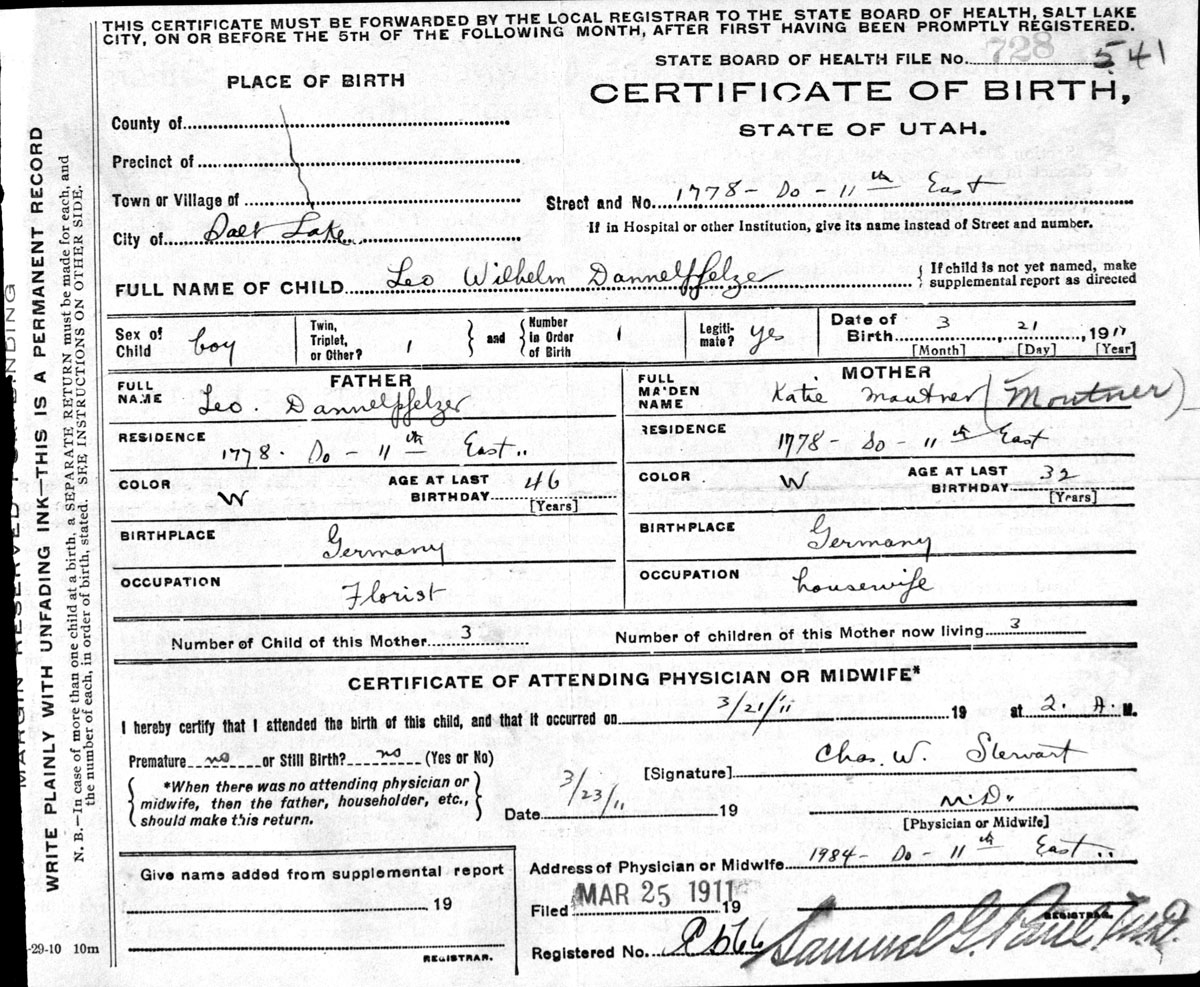 THIS CERTIFICATE MUST BE FORWARDED BY THE LOCAL REGISTRAR TO THE STATE BOARD OF HEALTH, SALT LAKE
CITY, ON OR BEFORE THE 5TH OF THE FOLLOWING MONTH, AFTER FIRST HAVING BEEN PROMPTLY REGISTERED.
728
STATE BOARD OF HEALTH FILE No. 541
PLACE OF BIRTH
CERTIFICATE OF BIRTH,
STATE OF UTAH.
County of
Precinct of
Town or Village of
Street and No. 1778 - So - 11th East
City of Salt Lake
If in Hospital or other Institution, give its name instead of Street and number.
FULL NAME OF CHILD Leo Wilhelm Dannelpfelzer
{ If child is not yet named, make
supplemental report as directed
Sex of Child boy
Twin, Triplet, or Other? 1
} and { Number in Order of Birth 1
Legitimate? yes
Date of Birth 3 21, 1911
[Month] [Day] [Year]
FATHER
FULL NAME Leo. Dannelpfelzer
RESIDENCE 1778 - So - 11th East
COLOR W
AGE AT LAST BIRTHDAY 46
[Years]
BIRTHPLACE Germany
OCCUPATION Florist
MOTHER
FULL MAIDEN NAME Katie Mautner (Moutner)
RESIDENCE 1778 - So - 11th East
COLOR W
AGE AT LAST BIRTHDAY 32
[Years]
BIRTHPLACE Germany
OCCUPATION housewife
Number of Child of this Mother 3
Number of children of this Mother now living 3
CERTIFICATE OF ATTENDING PHYSICIAN OR MIDWIFE*
I hereby certify that I attended the birth of this child, and that it occurred on 3/21/11 19 at 2. A. M.
Premature no or Still Birth? no (Yes or No)
[Signature] Chas. W. Stewart
{ *When there was no attending physician or
midwife, then the father, householder, etc.,
should make this return. }
Date 3/23/11 19
M.D.
[Physician or Midwife]
Address of Physician or Midwife 1984 - So - 11th East
Give name added from supplemental report
19
REGISTRAR.
Filed MAR 25 1911 19
Samuel G. Paul, M.D.
REGISTRAR.
Registered No.
-29-10 10m
MARGIN RESERVED FOR BINDING
WRITE PLAINLY WITH UNFADING INK—THIS IS A PERMANENT RECORD
N. B.—In case of more than one child at a birth, a SEPARATE RETURN must be made for each, and
the number of each, in order of birth, stated. SEE INSTRUCTIONS ON OTHER SIDE.